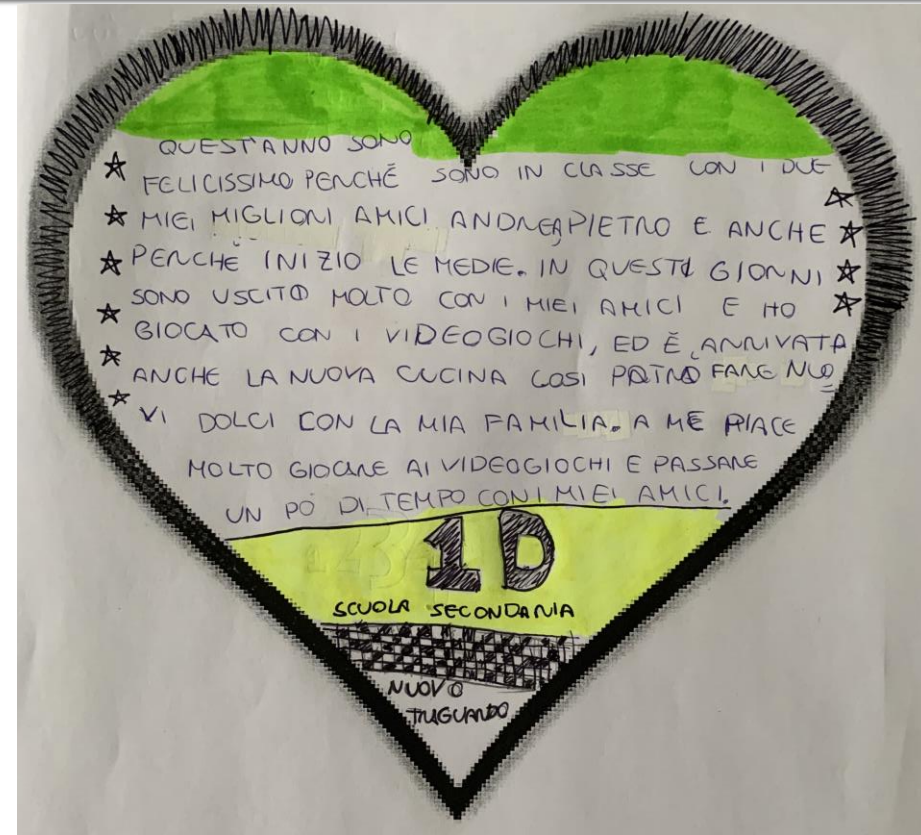 QUEST'ANNO SONO
FELICISSIMO PERCHÉ SONO IN CLASSE CON I DUE
MIEI MIGLIORI AMICI ANDREA PIETRO E ANCHE
PERCHÉ INIZIO LE MEDIE. IN QUESTI GIORNI
SONO USCITO MOLTO CON I MIEI AMICI E HO
GIOCATO CON I VIDEOGIOCHI, ED È ARRIVATA
ANCHE LA NUOVA CUCINA COSI POTRÒ FARE NUO
VI DOLCI CON LA MIA FAMILIA. A ME PIACE
MOLTO GIOCARE AI VIDEOGIOCHI E PASSARE
UN PÓ DI TEMPO CON I MIEI AMICI.
1D
SCUOLA SECONDARIA
NUOVO
TRAGUARDO